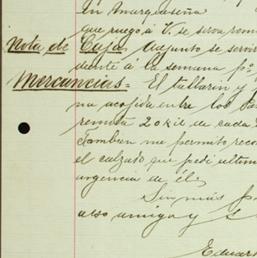 En Amarqueseña
que ruego á V. se sirva rem
Nota de Caja. Adjunto se servir
diente á la semana pº
Mercancias = El tallarin y
na acojida entre los
remita 20 kil de cada
Tambien me permito reco
el calzado que pedi ultim
urgencia de él.
Sin más p
afso amigo y S
Eduar